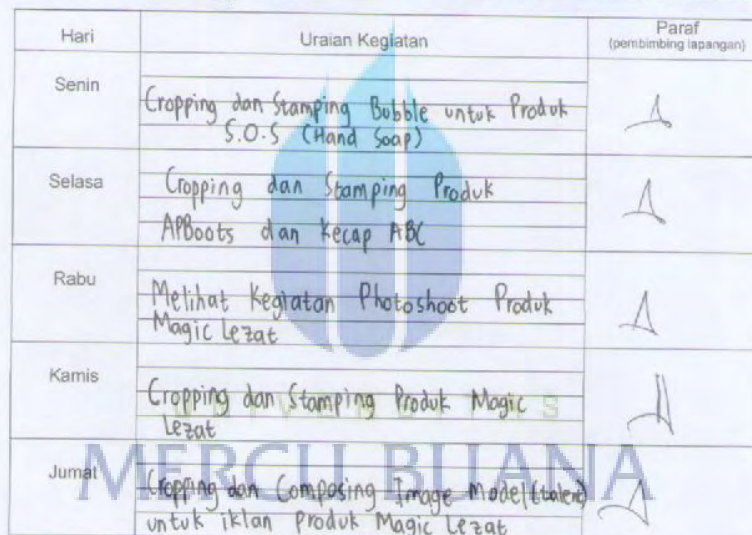 Hari Uraian Kegiatan Paraf
(pembimbing lapangan)
Senin
Cropping dan Stamping Bubble untuk Produk
S.O.S (Hand Soap)
Selasa
Cropping dan Stamping Produk
APBoots dan Kecap ABC
Rabu
Melihat Kegiatan Photoshoot Produk
Magic Lezat
Kamis
Cropping dan Stamping Produk Magic
Lezat
MERCU BUANA
Jumat
Cropping dan Composing Image Model (talent)
untuk iklan produk Magic Lezat